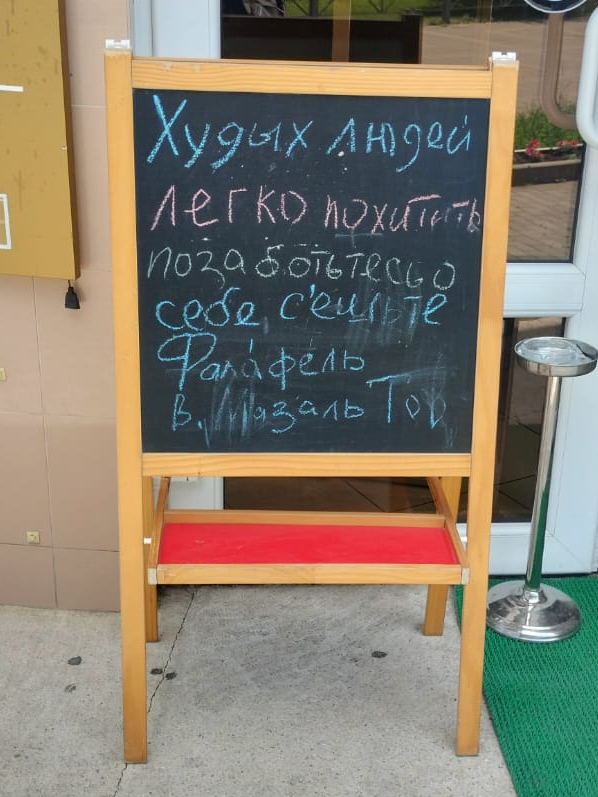 Худых людей
легко похитить
позаботьтесьо
себе, съешьте
Фалафель
в. Мазаль Тов